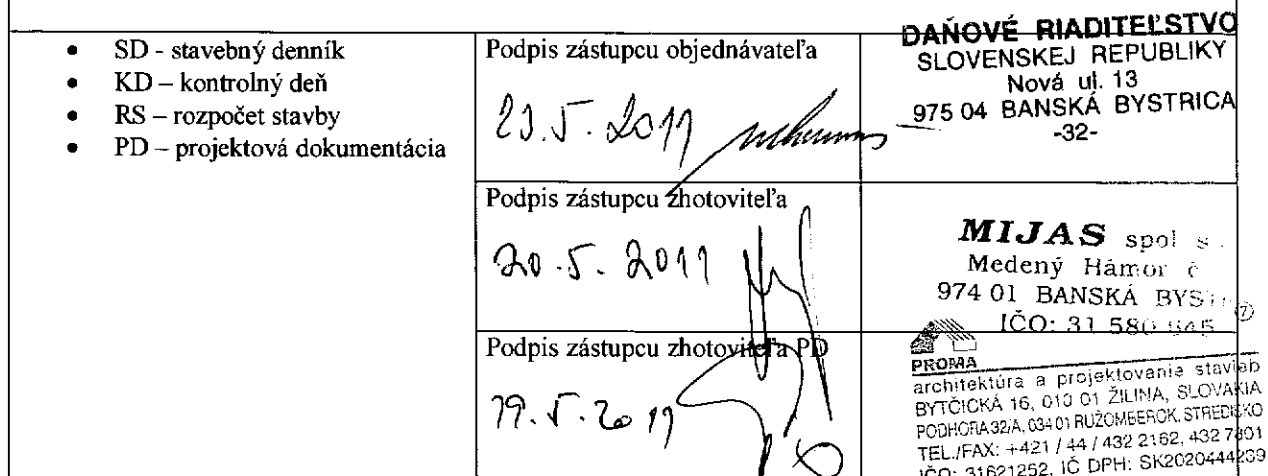 • SD - stavebný denník
• KD – kontrolný deň
• RS – rozpočet stavby
• PD – projektová dokumentácia
Podpis zástupcu objednávateľa
23.5.2011
DAŇOVÉ RIADITEĽSTVO
SLOVENSKEJ REPUBLIKY
Nová ul. 13
975 04 BANSKÁ BYSTRICA
-32-
Podpis zástupcu zhotoviteľa
20.5.2011
MIJAS spol s.
Medený Hámor č
974 01 BANSKÁ BYST
IČO: 31 580 945
Podpis zástupcu zhotoviteľa PD
19.5.2011
PROMA
architektúra a projektovanie stavieb
BYTČICKÁ 16, 010 01 ŽILINA, SLOVAKIA
PODHORA 32/A, 034 01 RUŽOMBEROK, STREDISKO
TEL./FAX: +421 / 44 / 432 2162, 432 7801
IČO: 31621252, IČ DPH: SK2020444239